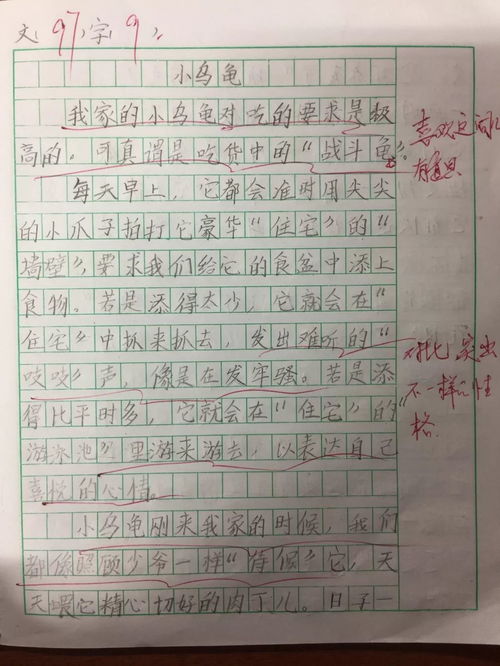 文97字9
小乌龟
我家的小乌龟对吃的要求是极
高的。可真谓是吃货中的“战斗龟”。
每天早上，它都会准时用尖尖
的小爪子拍打它豪华“住宅”的“
墙壁”，要求我们给它的食盆中添上
食物。若是添得太少，它就会在“
住宅”中抓来抓去，发出难听的“
吱吱”声，像是在发牢骚。若是添
得比平时多，它就会在“住宅”的“
游泳池”里游来游去，以表达自己
喜悦的心情。
小乌龟刚来我家的时候，我们
都像照顾少爷一样“侍候”它，天
天喂它精心切好的肉丁儿。日子一
对比突出
不一样的性
格